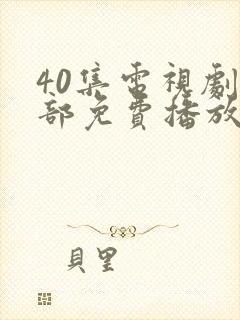 40集電視劇
部免費播放
貝里